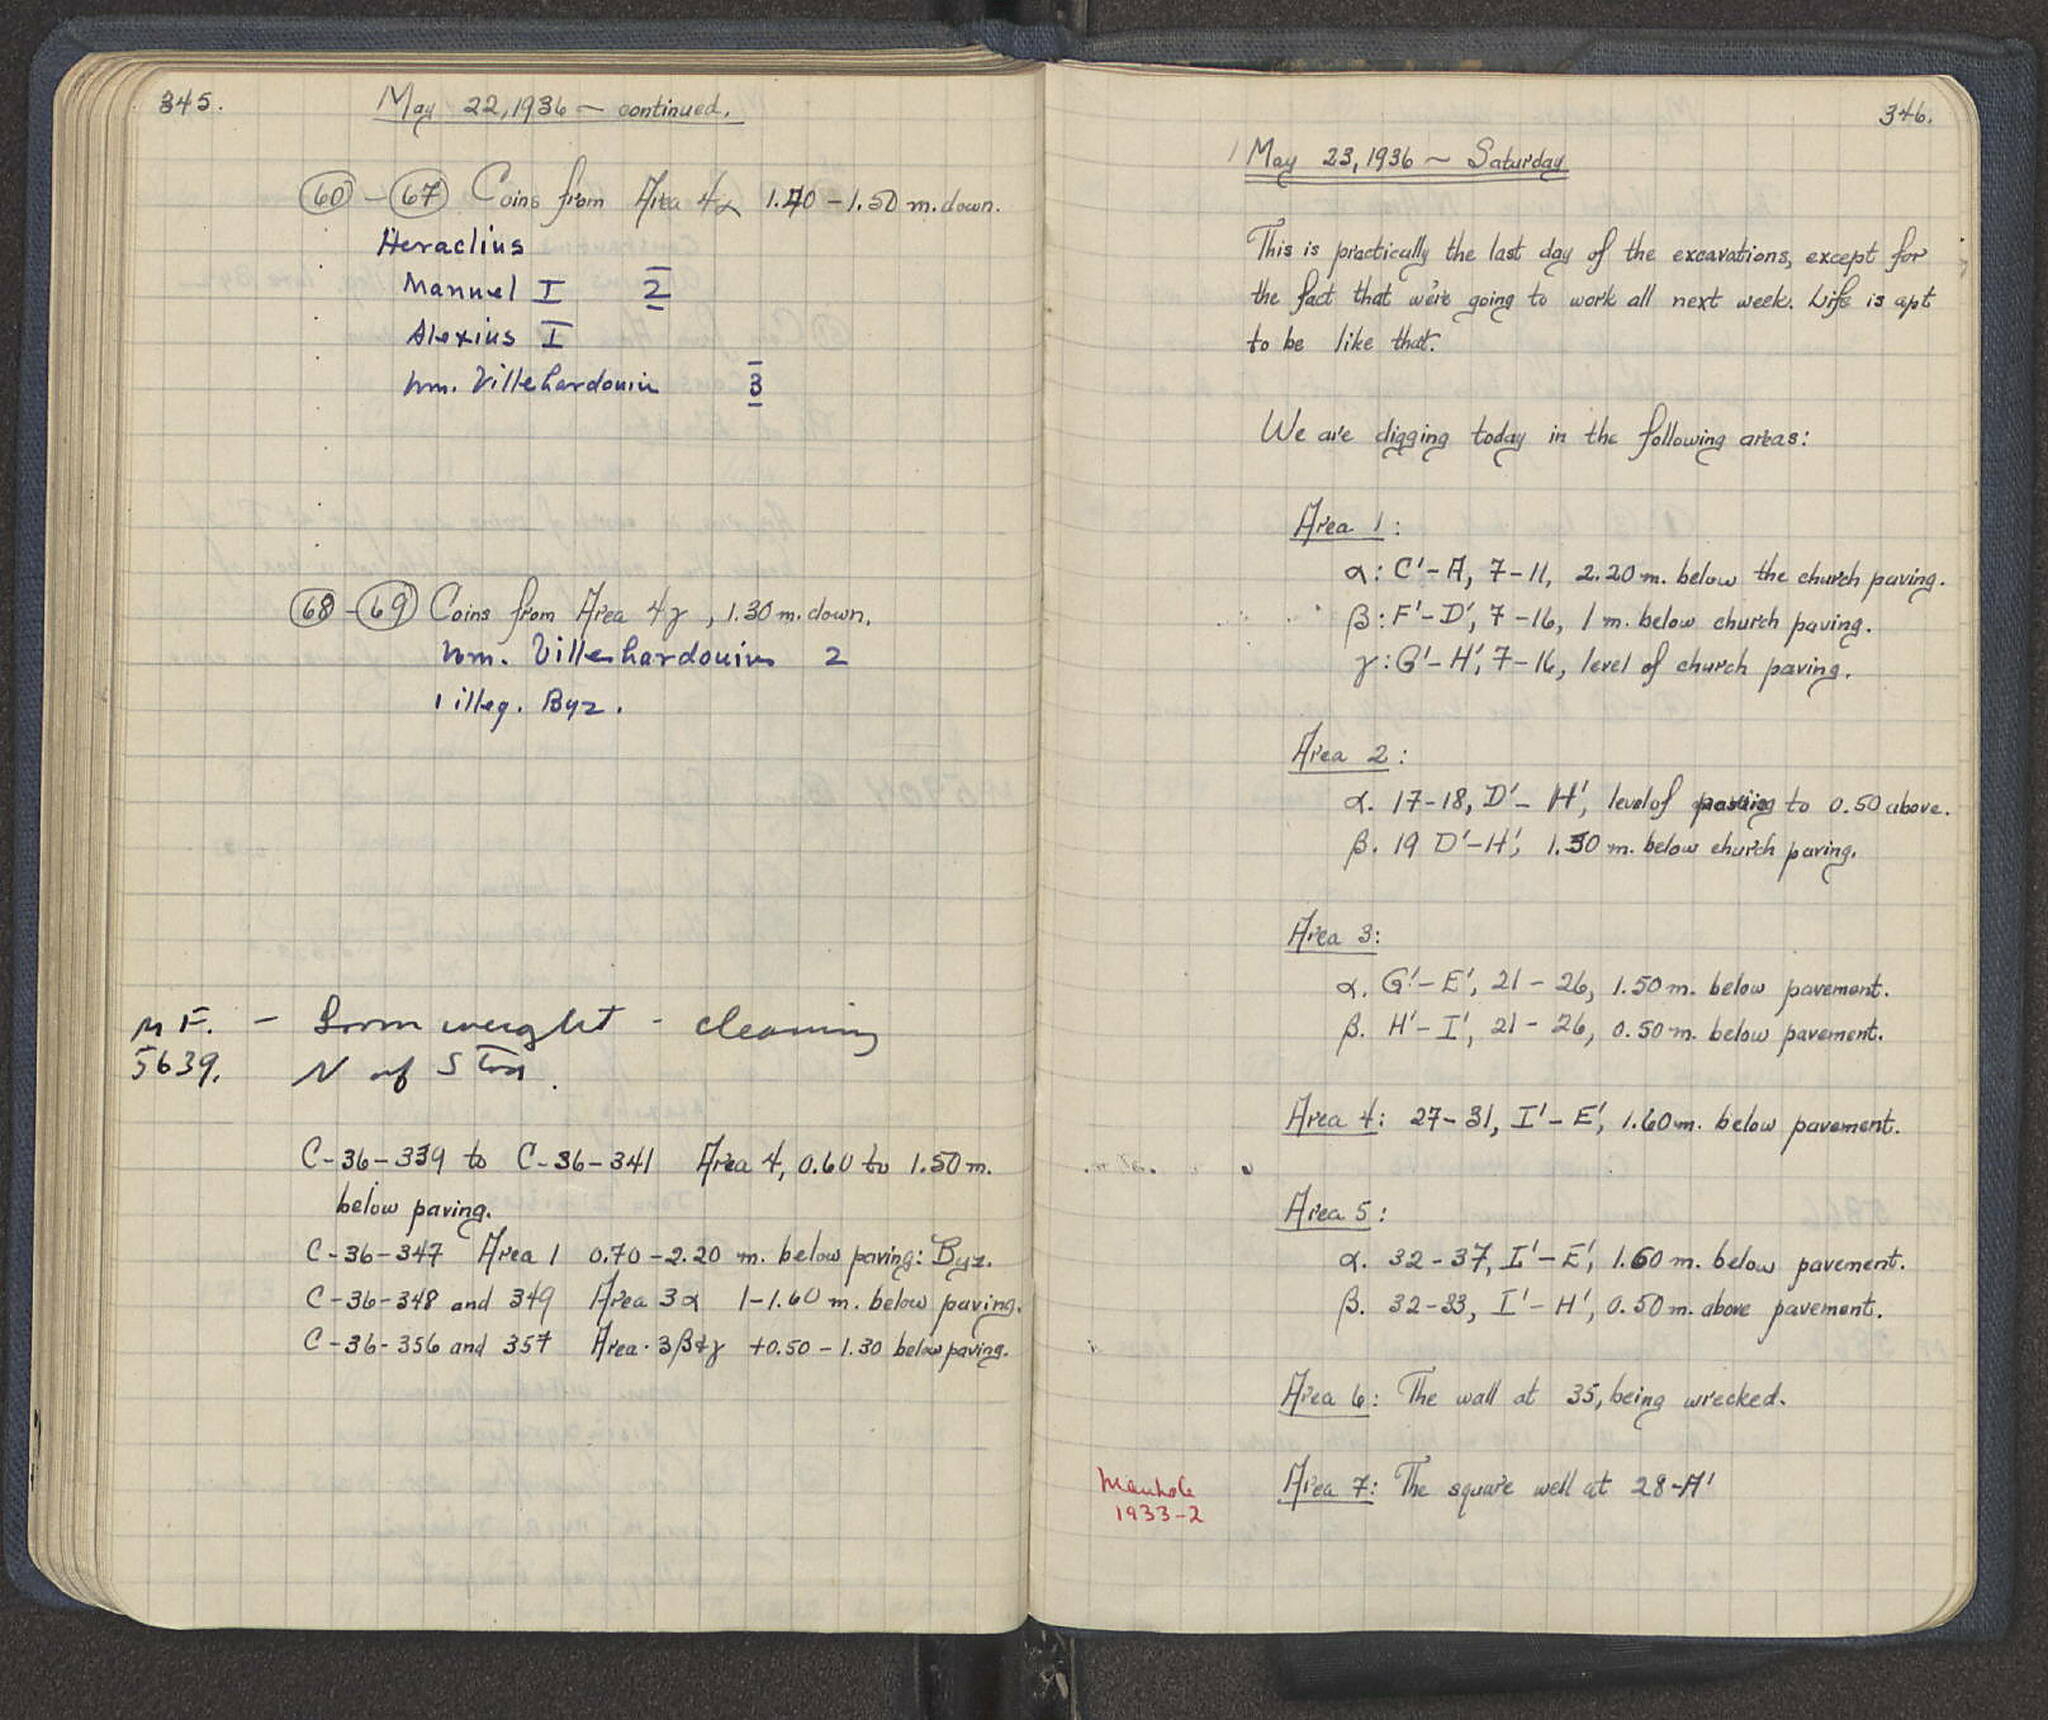 345.
May 22, 1936 — continued.
60 - 67 Coins from Area 4α 1.40 - 1.50 m. down.
Heraclius
Manuel I 2
Alexius I
Wm. Villehardouin 3
68 - 69 Coins from Area 4γ, 1.30 m. down.
Wm. Villehardouin 2
1 illeg. Byz.
MF. - Loom weight - cleaning
5639. N of Stoa.
C-36-339 to C-36-341 Area 4, 0.60 to 1.50 m.
below paving.
C-36-347 Area 1 0.70 - 2.20 m. below paving: Byz.
C-36-348 and 349 Area 3α 1-1.60 m. below paving.
C-36-356 and 357 Area 3β+γ +0.50 - 1.30 below paving.
346.
May 23, 1936 ~ Saturday
This is practically the last day of the excavations, except for
the fact that we're going to work all next week. Life is apt
to be like that.
We are digging today in the following areas:
Area 1:
α: C'-A, 7-11, 2.20 m. below the church paving.
β: F'-D', 7-16, 1 m. below church paving.
γ: G'-H', 7-16, level of church paving.
Area 2:
α. 17-18, D'-H', level of paving to 0.50 above.
β. 19 D'-H', 1.30 m. below church paving.
Area 3:
α. G'-E', 21-26, 1.50 m. below pavement.
β. H'-I', 21-26, 0.50 m. below pavement.
Area 4: 27-31, I'-E', 1.60 m. below pavement.
Area 5:
α. 32-37, I'-E', 1.60 m. below pavement.
β. 32-33, I'-H', 0.50 m. above pavement.
Area 6: The wall at 35, being wrecked.
Manhole
1933-2
Area 7: The square well at 28-A'